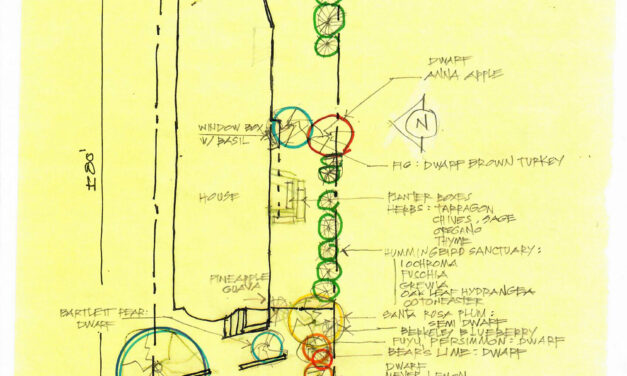 DWARF
ANNA APPLE
N
WINDOW BOX
W/ BASIL
FIG: DWARF BROWN TURKEY
± 80'
HOUSE
PLANTER BOXES
HERBS: TARRAGON
CHIVES, SAGE
OREGANO
THYME
HUMMINGBIRD SANCTUARY:
IOCHROMA
FUSCHIA
GREWIA
OAK LEAF HYDRANGEA
COTONEASTER
PINEAPPLE
GUAVA
BARTLETT PEAR:
DWARF
SANTA ROSA PLUM:
SEMI DWARF
BERKELEY BLUEBERRY
FUYU PERSIMMON: DWARF
BEAR'S LIME: DWARF
DWARF
MEYER LEMON